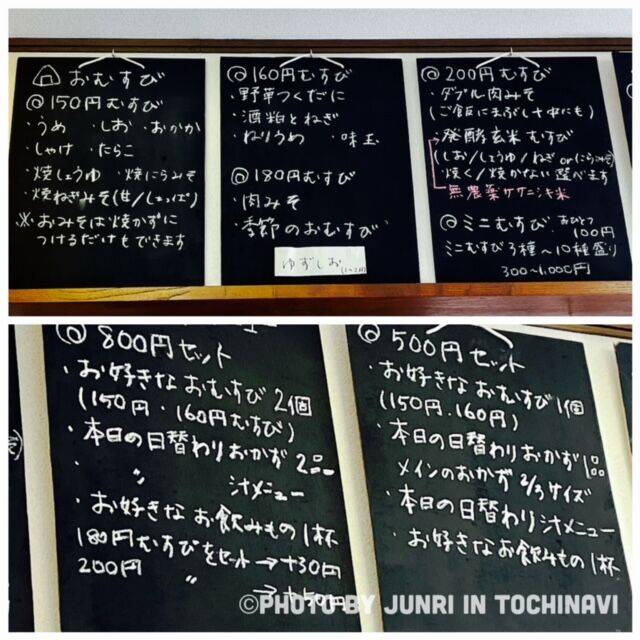 おむすび
◎150円むすび
・うめ ・しお ・おかか
・しゃけ ・たらこ
・焼しょうゆ ・焼にらみそ
・焼ねぎみそ(甘/しょっぱ)
※おみそは焼かずに
つけるだけもできます
◎160円むすび
・野草つくだに
・酒粕とねぎ
・ねりうめ ・味玉
◎180円むすび
・肉みそ
・季節のおむすび
ゆずしお
◎200円むすび
・ダブル肉みそ
(ご飯にまぶし+中にも)
・発酵玄米むすび
(しお/しょうゆ/ねぎorにらみそ)
・焼く/焼かない選べます
無農薬ササニシキ米
◎ミニむすび おひとつ
100円
ミニむすび3種〜10種盛り
300〜1,000円
◎800円セット
・お好きなおむすび2個
(150円・160円むすび)
・本日の日替わりおかず2品
・〃 汁メニュー
・お好きなお飲みもの1杯
180円むすびをセット→+30円
200円 〃 →+50円
◎500円セット
・お好きなおむすび1個
(150円、160円)
・本日の日替わりおかず1品
メインのおかず2/3サイズ
・本日の日替わり汁メニュー
・お好きなお飲みもの1杯
©PHOTO BY JUNRI IN TOCHINAVI